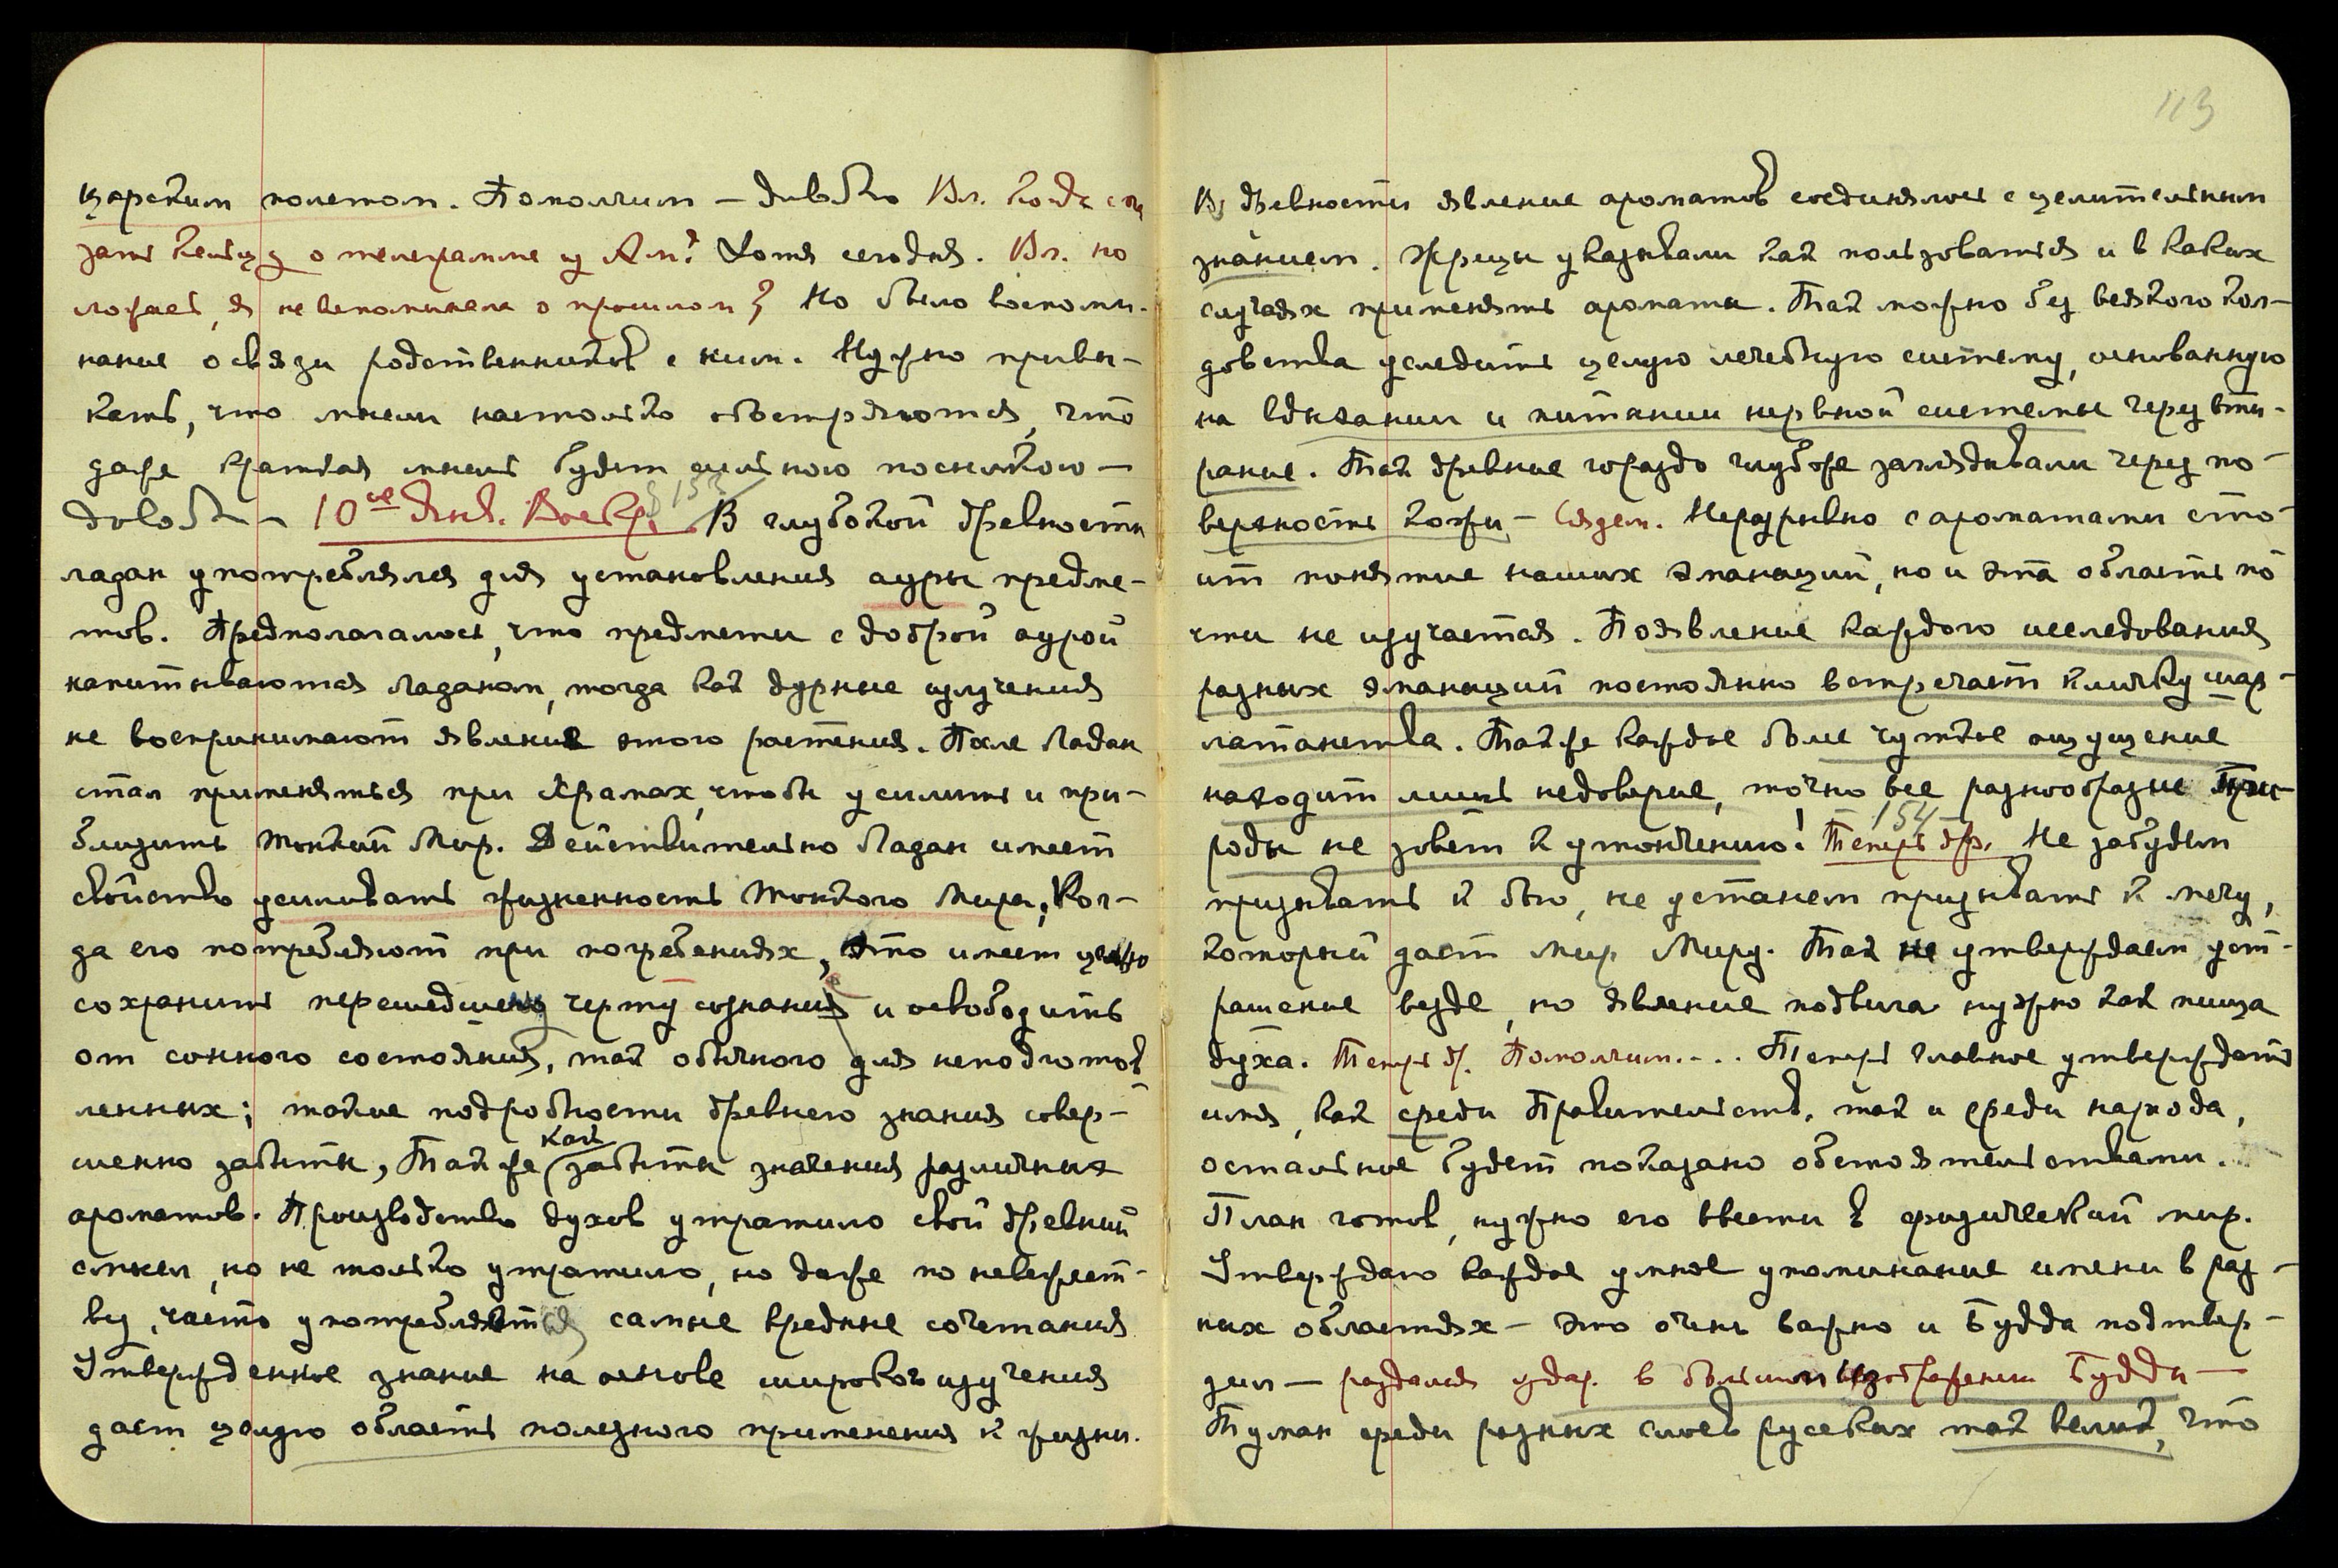 царским полетом. Помолчим — довольно Вл. когда ска
зать кельцу о телеграмме из Ам.? Хотя сегодня. Вл. по
лагает, я не вспоминала о прошлом? Но было воспоми-
нание о связи родственников с ним. Нужно привы-
кать, что мысли настолько обостряются, что
даже краткая мысль будет сильного посылкою —
довольно — 10ое Янв. Воскр. § 153 В глубокой древности
ладан употреблялся для установления ауры предме-
тов. Предполагалось, что предметы с доброй аурой
напитываются ладаном, тогда как дурные излучения
не воспринимают явления этого растения. После Ладан
стал применяться при Храмах, чтобы усилить и при-
близить Тонкий Мир. Действительно Ладан имеет
свойство усиливать жизненность Тонкого Мира, Ког-
да его потребляют при погребениях, это имеет целью
сохранить перешедшему черту сознание и освободить
от сонного состояния, так обычного для неподготов
ленных; такие подробности древнего знания совер-
шенно забыты, Так же как забыты значения различных
ароматов. Производство духов утратило свой древний
смысл, но не только утратило, но даже по невежест-
ву, часто употребляется самые вредные сочетания
Утвержденное знание на основе широкого изучения
дает целую область полезного применения к жизни.
113
В древности явление ароматов соединялось с целительным
знанием. Жрецы указывали как пользоваться и в каких
случаях применять ароматы. Так можно без всякого кол-
довства уследить целую лечебную систему, основанную
на вдыхании и питании нервной системы через вти-
рание. Так древние гораздо глубже заглядывали через по-
верхность кожи — Сядем. Неразрывно с ароматами сто-
ит понятие наших эманаций, но и эта область по
чти не изучается. Появление каждого исследования
разных эманаций постоянно встречает кличку шар-
латанства. Также каждое более чуткое ощущение
находит лишь недоверие, точно все разнообразие При-
роды не зовет к утончению! 154 Теперь др. Не забудем
призывать к бою, не устанем призывать к мечу,
который дает мир Миру. Так не утверждаем уст-
рашение везде, но явление подвига нужно как пища
духа. Теперь др. Помолчим. . . . Теперь главное утверждать
имя, как среди Правительств, так и среди народа,
остальное будет показано обстоятельствами.
План готов, нужно его ввести в физический мир.
Утверждаю каждое умное упоминание имени в раз-
ных областях — это очень важно и Будда подтвер-
дил — раздался удар в большом изображении Будды —
Туман среди разных слоев русских так велик, что